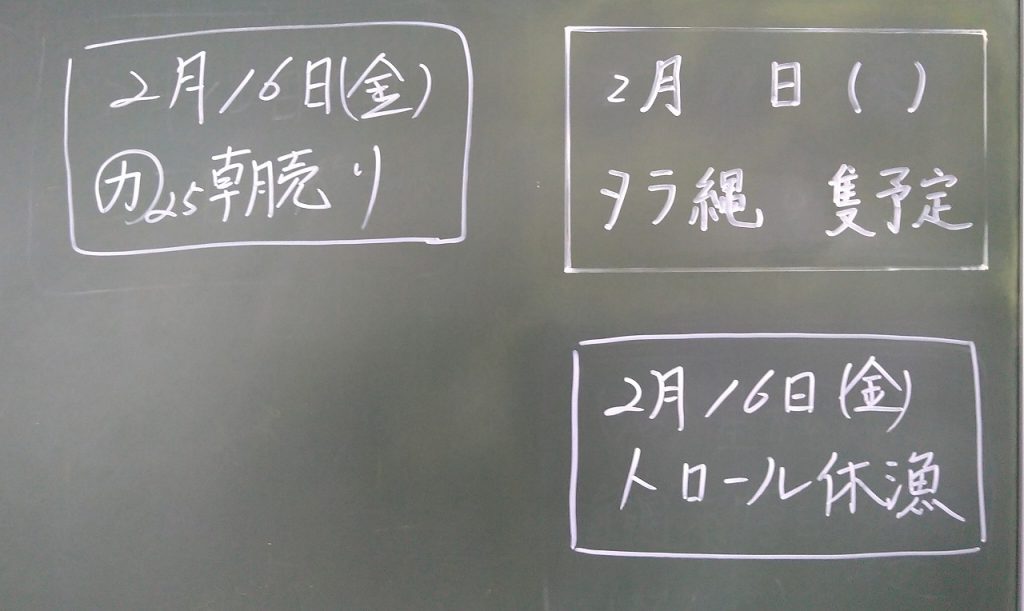 2月16日(金)
㋕25朝売り
2月 日( )
タラ縄 隻予定
2月16日(金)
トロール休漁